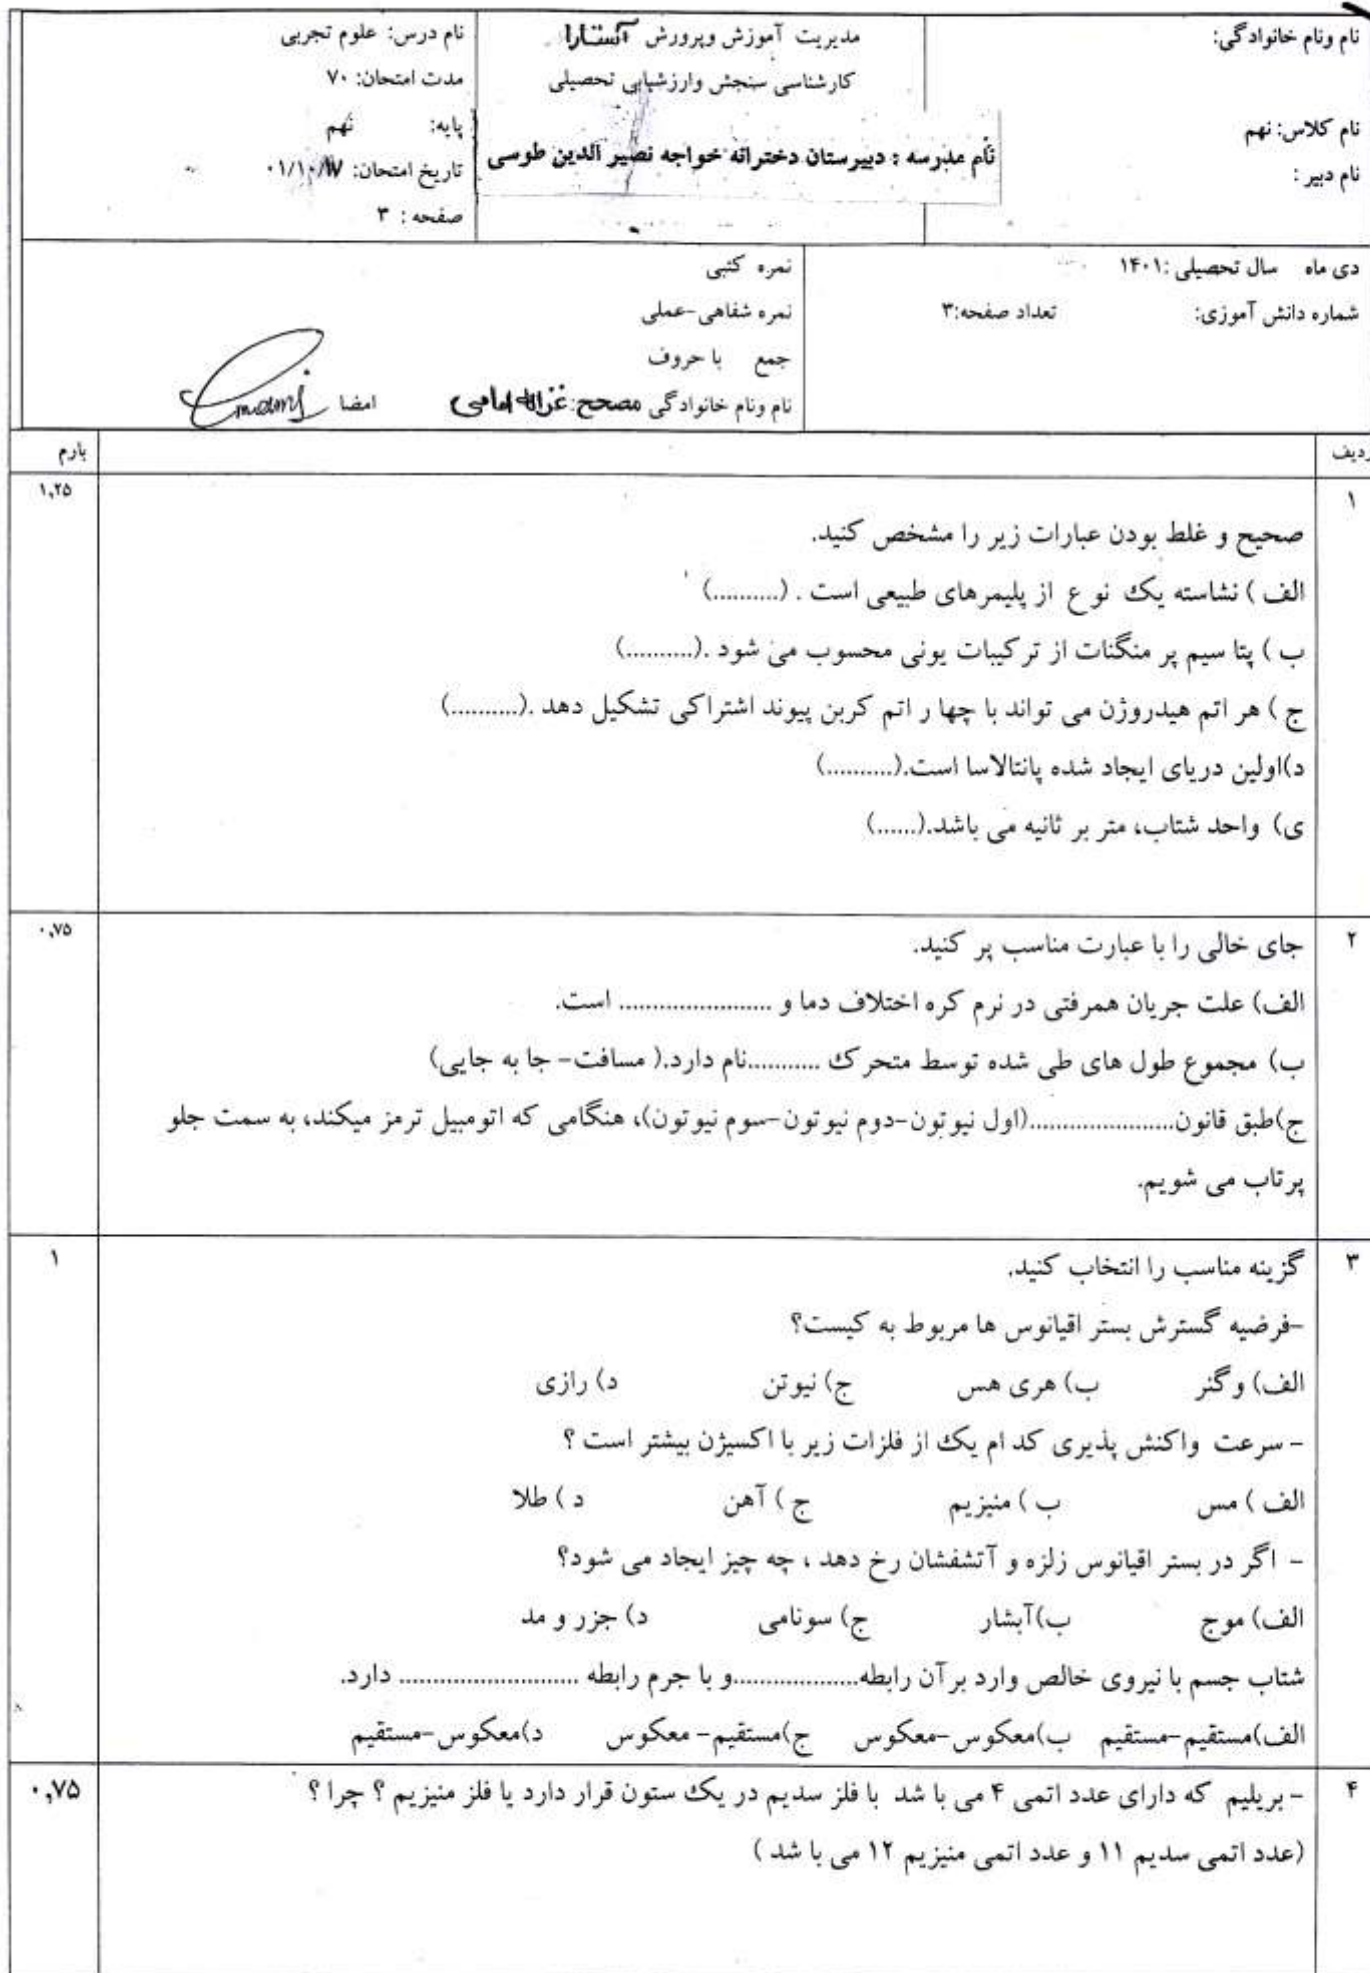 نام ونام خانوادگی:
نام کلاس: نهم
نام دبیر :
مدیریت آموزش وپرورش آستارا
کارشناسی سنجش وارزشیابی تحصیلی
نام مدرسه : دبیرستان دخترانه خواجه نصیر الدین طوسی
نام درس: علوم تجربی
مدت امتحان: ۷۰
پایه: نهم
تاریخ امتحان: ۰۱/۱۰/۱۷
صفحه : ۳
دی ماه سال تحصیلی :۱۴۰۱
شماره دانش آموزی: تعداد صفحه:۳
نمره کتبی
نمره شفاهی-عملی
جمع با حروف
نام ونام خانوادگی مصحح: غزاله امامی امضا Emami
ردیف بارم
۱ ۱,۲۵
صحیح و غلط بودن عبارات زیر را مشخص کنید.
الف ) نشاسته یک نو ع از پلیمرهای طبیعی است . (..........)
ب ) پتا سیم پر منگنات از ترکیبات یونی محسوب می شود .(..........)
ج ) هر اتم هیدروژن می تواند با چها ر اتم کربن پیوند اشتراکی تشکیل دهد .(..........)
د)اولین دریای ایجاد شده پانتالاسا است.(..........)
ی) واحد شتاب، متر بر ثانیه می باشد.(......)
۲ جای خالی را با عبارت مناسب پر کنید. ۰,۷۵
الف) علت جریان همرفتی در نرم کره اختلاف دما و ...................... است.
ب) مجموع طول های طی شده توسط متحرک ...........نام دارد.( مسافت- جا به جایی)
ج)طبق قانون.....................(اول نیوتون-دوم نیوتون-سوم نیوتون)، هنگامی که اتومبیل ترمز میکند، به سمت جلو
پرتاب می شویم.
۳ گزینه مناسب را انتخاب کنید. ۱
-فرضیه گسترش بستر اقیانوس ها مربوط به کیست؟
الف) وگنر ب) هری هس ج) نیوتن د) رازی
- سرعت واکنش پذیری کد ام یک از فلزات زیر با اکسیژن بیشتر است ؟
الف ) مس ب ) منیزیم ج ) آهن د ) طلا
- اگر در بستر اقیانوس زلزه و آتشفشان رخ دهد ، چه چیز ایجاد می شود؟
الف) موج ب)آبشار ج) سونامی د) جزر و مد
شتاب جسم با نیروی خالص وارد بر آن رابطه..................و با جرم رابطه .......................... دارد.
الف)مستقیم-مستقیم ب)معکوس-معکوس ج)مستقیم- معکوس د)معکوس-مستقیم
۴ - بریلیم که دارای عدد اتمی ۴ می با شد با فلز سدیم در یک ستون قرار دارد یا فلز منیزیم ؟ چرا ؟ ۰,۷۵
(عدد اتمی سدیم ۱۱ و عدد اتمی منیزیم ۱۲ می با شد )